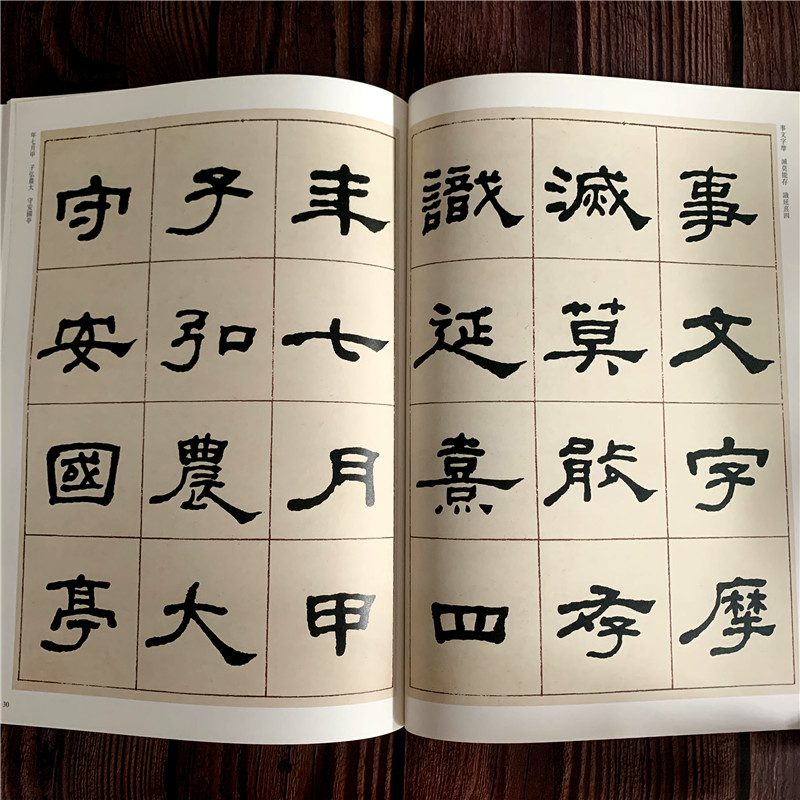 事文字摩　滅莫能存　識延熹四
事文字摩
滅莫能存
識延熹四
年七月甲
子弘農大
守安國亭
年七月甲　子弘農大　守安國亭
30